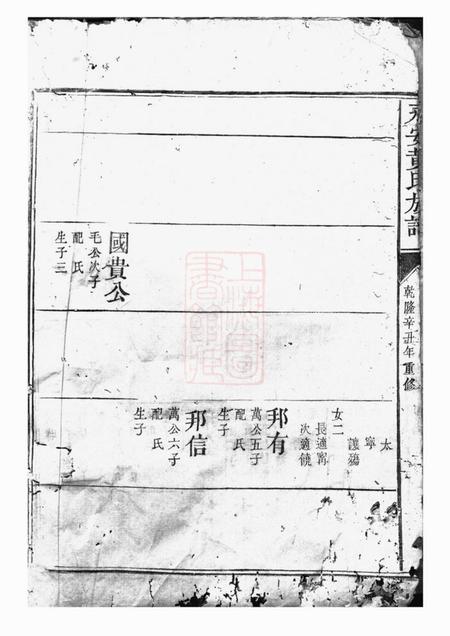 黃氏族譜
乾隆辛丑年重修
國貴公
毛公次子
配　氏
生子三
太
寧
護
女二
長適甯
次適饒
邦有
萬公五子
配　氏
生子
邦信
萬公六子
配　氏
生子
上海圖書館藏